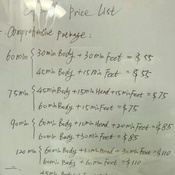 Price List
Comprehensive package:
60min 30min Body + 30min Feet = $55
45min Body + 15min Feet = $55
75min 45min Body + 15min Head + 15min Feet = $75
60min Body + 15min Feet = $75
90min 60min Body + 10min Head + 20min Feet = $85
60min Body + 30min Feet = $85
120min 60min Body + 30min Feet = $110
60min Body + 60min Feet = $110
45min Body